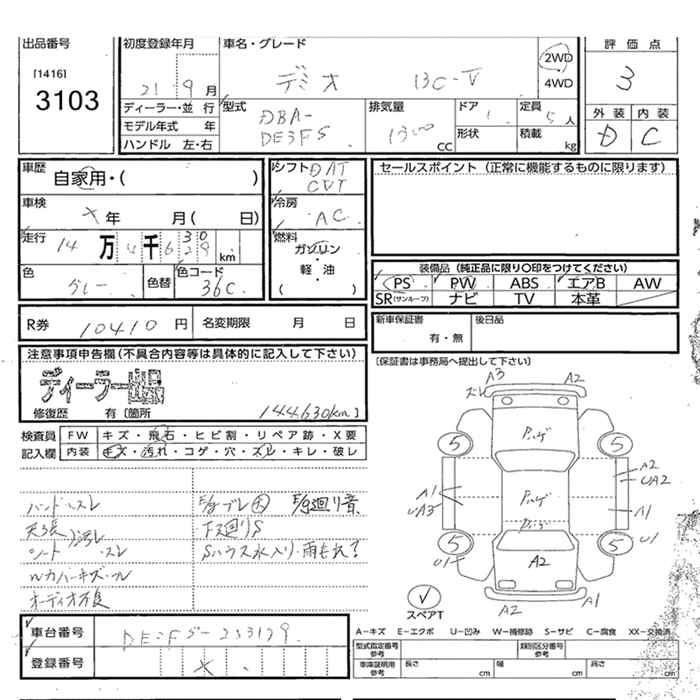 出品番号
[1416]
3103
初度登録年月
21. 9 月
車名・グレード
デミオ 13C-V
2WD
4WD
評価点
3
外装 内装
D C
ディーラー・並行
モデル年式 年
ハンドル 左・右
型式
DBA-
DE3FS
排気量
1300 CC
ドア
形状
定員
5 人
積載 kg
車歴
自家用・( )
車検
× 年 月( 日)
走行
14 万 4 千 6 29 km
30
色
グレー
色替
色コード
36C
シフト
DAT
CVT
冷房
AC
燃料
ガソリン
・
軽・油
( )
セールスポイント (正常に機能するものに限ります)
装備品 (純正品に限り○印をつけてください)
PS PW ABS エアB AW
SR(サンルーフ) ナビ TV 本革
R券 10410 円
名変期限 月 日
新車保証書
有・無
後日品
[保証書は事務局へ提出して下さい]
注意事項申告欄(不具合内容等は具体的に記入して下さい)
ディーラー
144630km
修復歴 有 [箇所 ]
検査員
記入欄
FW キズ・飛石・ヒビ割・リペア跡・X要
内装 キズ・汚れ・コゲ・穴・スレ・キレ・破レ
ハンドルスレ
天張
シート 汚レ・スレ
Wカバーキズ・ル
E/gブレ大 E/g廻り音
下廻りS
Sハウス水入り・雨もれ?
A3 A2
ズレ
パンゲ
5 5
A2
UA2
A1
UA3
A1
パンゲ
パンゲ
5 5
U1 U1
A2
A2 A1
スペアT
A-キズ E-エクボ U-凹み W-補修跡 S-サビ C-腐食 XX-交換済
車台番号
DE3FS-233129
登録番号
×
型式指定番号
参考
類別区分番号
参考
車庫証明用
参考
長さ cm
幅 cm
高さ cm